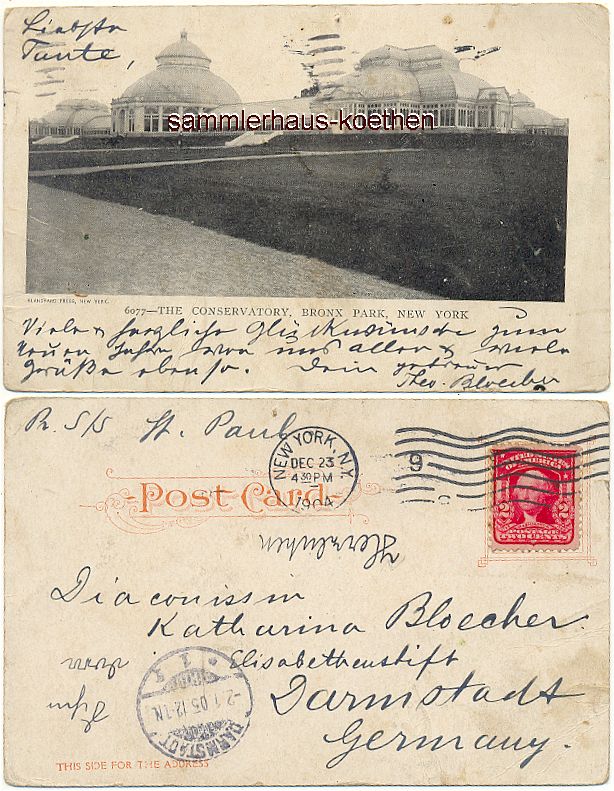 Liebste
Tante,
sammlerhaus-koethen
BLANCHARD PRESS, NEW YORK.
6077—THE CONSERVATORY, BRONX PARK, NEW YORK
Viele & herzliche Glückwünsche zum
neuen Jahre von uns allen & viele
Grüße ebenso. Dein getreuer
Theo. Bloecher
Pr. S/S St. Paul
NEW YORK, N.Y.
DEC 23
4 30 PM
1904
9
Post Card
Diaconissin
Katharina Bloecher
Elisabethenstift
Darmstadt
Germany.
DARMSTADT
2.1.05.12-1N.
THIS SIDE FOR THE ADDRESS